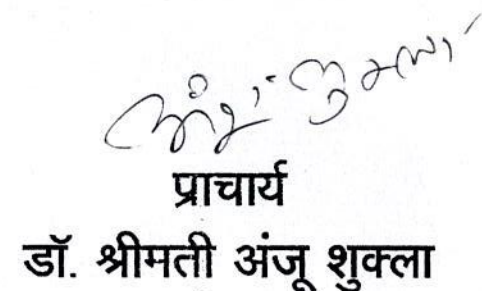 अंजु शुक्ला
प्राचार्य
डॉ. श्रीमती अंजू शुक्ला